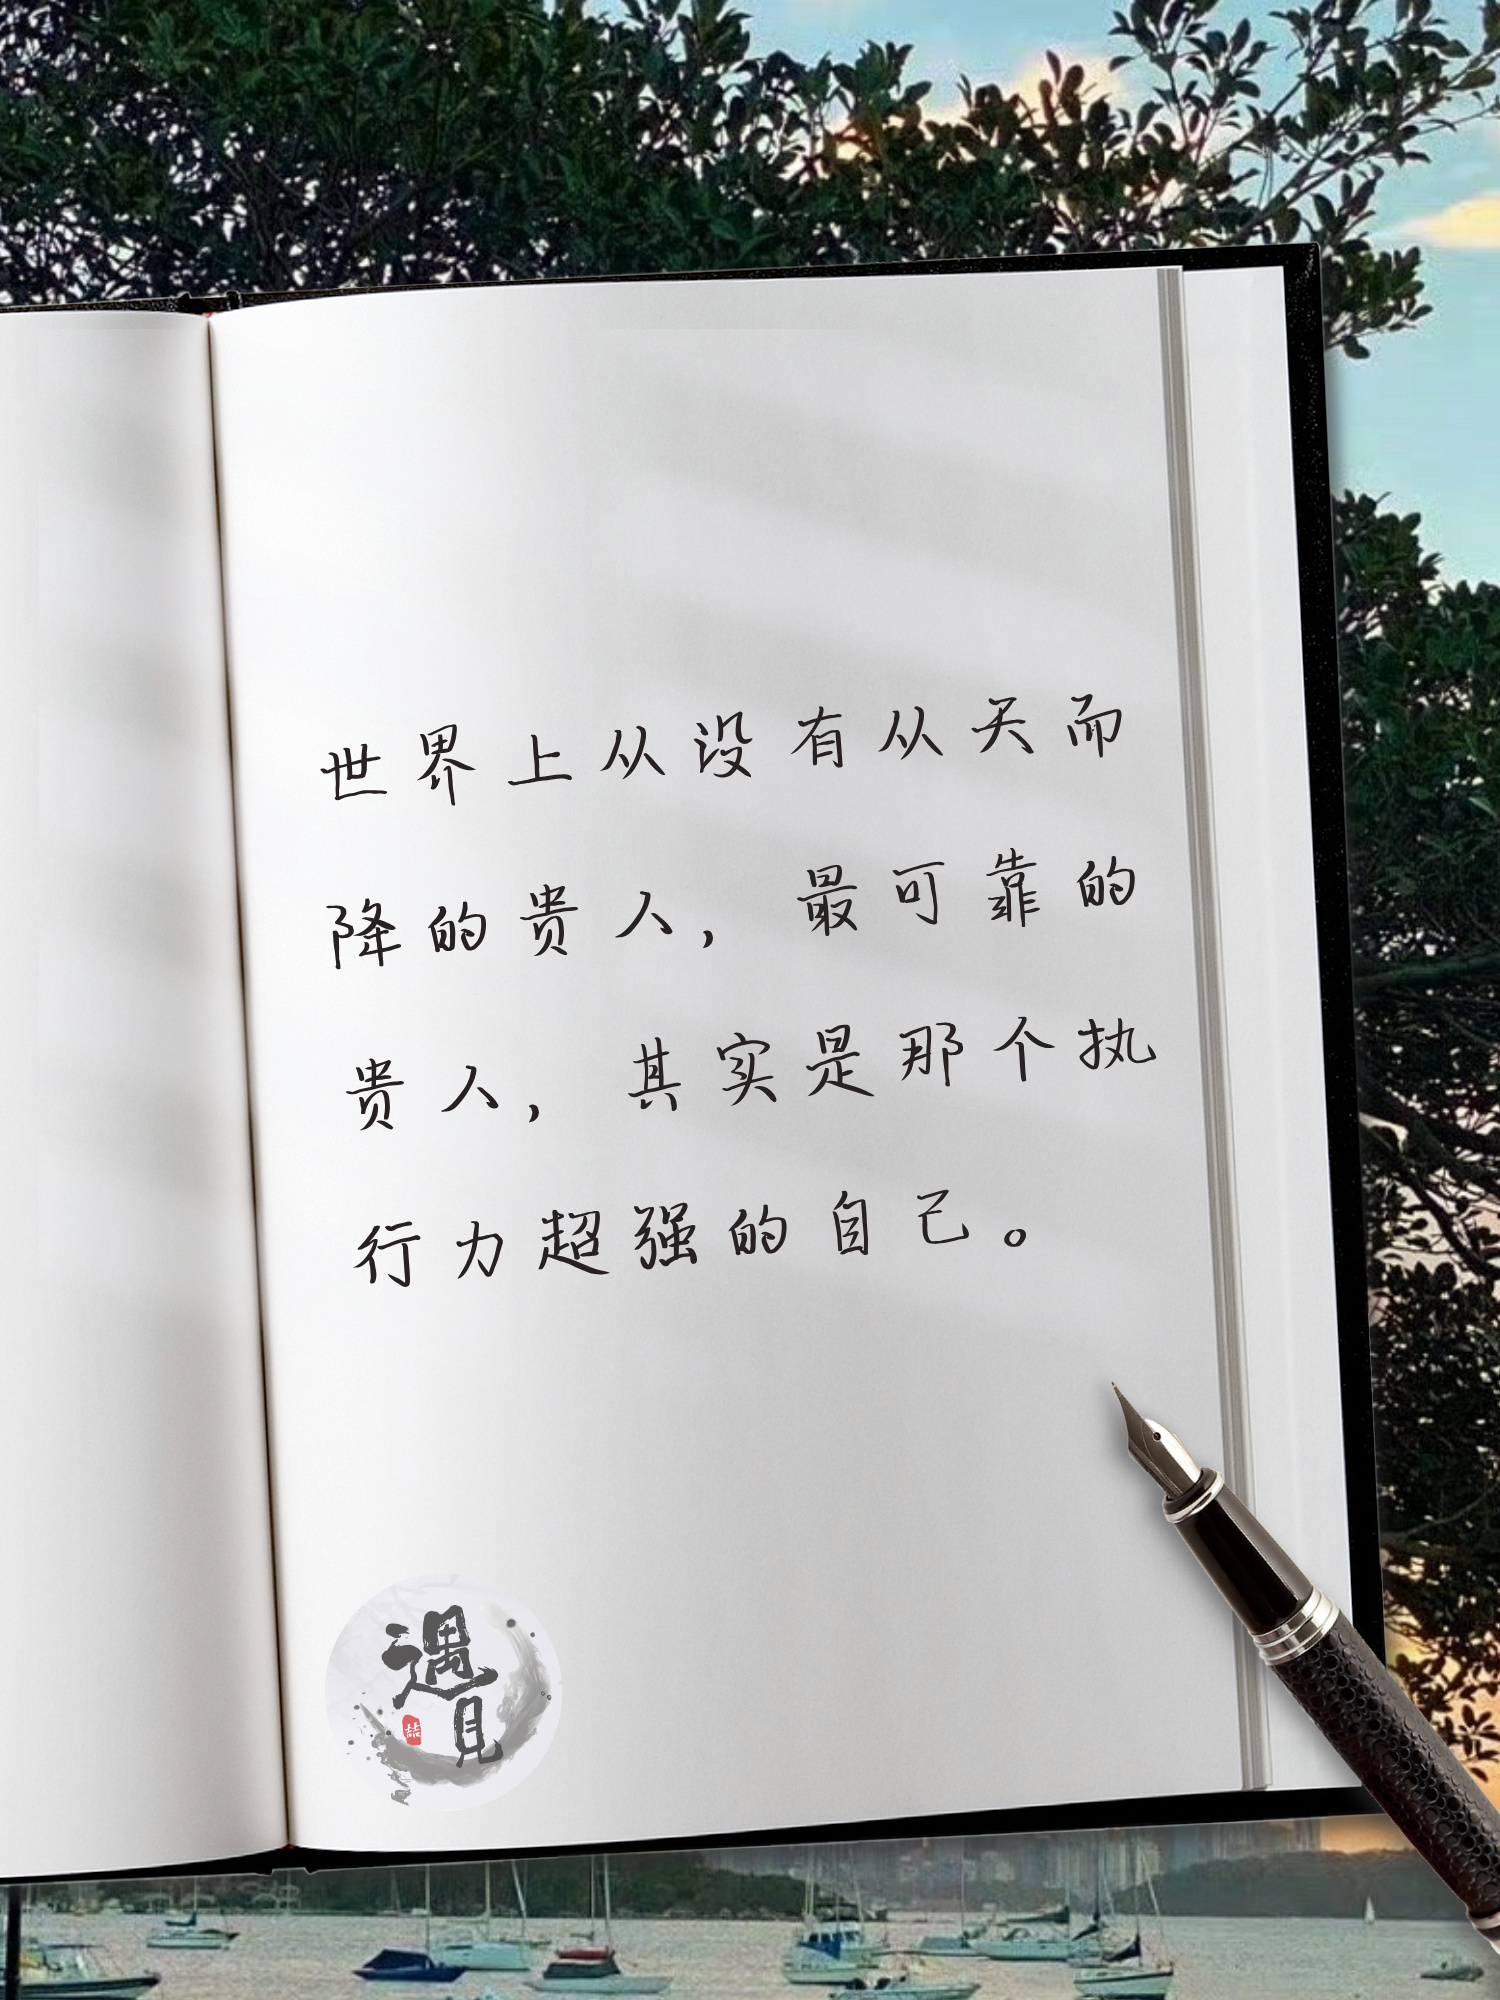 世界上从没有从天而
降的贵人，最可靠的
贵人，其实是那个执
行力超强的自己。
遇
见
喆